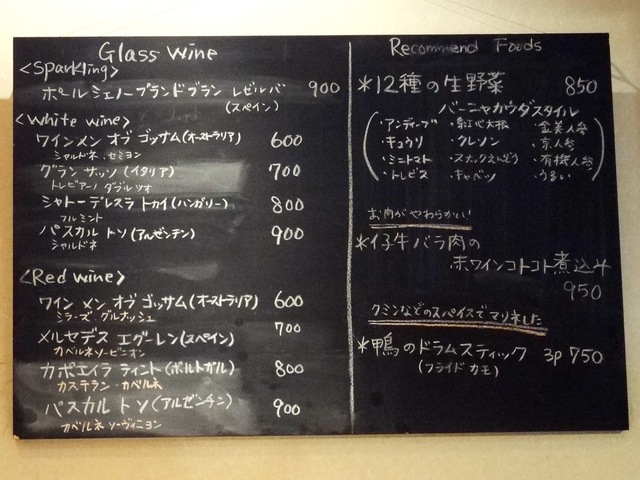 Glass Wine
<Sparkling>
ポール シェノー ブランドブラン レゼルバ 900
(スペイン)
<White wine>
ワインメン オブ ゴッサム(オーストラリア) 600
シャルドネ・セミヨン
グラン サッソ(イタリア) 700
トレビアーノ ダブルッツオ
シャトーデレスラ トカイ(ハンガリー) 800
フルミント
パスカル トソ(アルゼンチン) 900
シャルドネ
<Red wine>
ワイン メン オブ ゴッサム(オーストラリア) 600
シラーズ グルナッシュ
メルセデス エグーレン(スペイン) 700
カベルネソービニオン
カポエイラ ティント(ポルトガル) 800
カステラン・カベルネ
パスカル トソ(アルゼンチン) 900
カベルネ ソーヴィニヨン
Recommend Foods
*12種の生野菜 850
バーニャカウダスタイル
・アンディーブ ・紅心大根 ・金美人参
・キュウリ ・クレソン ・京人参
・ミニトマト ・スナックえんどう ・有機人参
・トレビス ・キャベツ ・うるい
お肉がやわらかい!
*仔牛バラ肉の
赤ワインコトコト煮込み
950
クミンなどのスパイスでマリネした
*鴨のドラムスティック 3p 750
(フライドカモ)